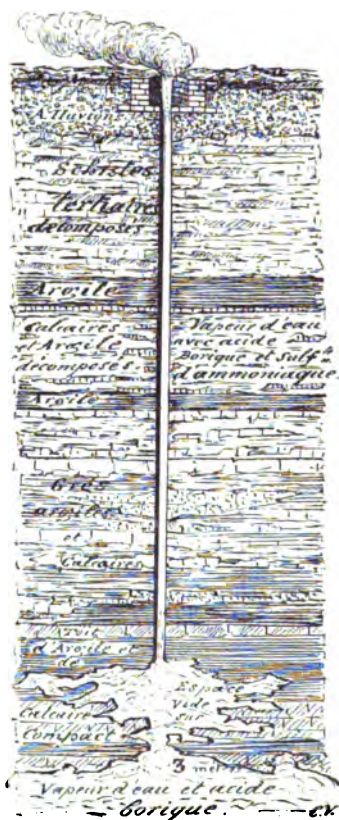 Alluvion
Schistes
tertiaires
décomposés
Argile
Calcaires
et Argile
décomposés
Vapeur d'eau
avec acide
Borique et Sulf.te
d'ammoniaque
Argile
Grès
argileux
et
Calcaires
d'Argile et
de
Calcaire
Compact
Espace
Vide
sur
3 mètres
Vapeur d'eau et acide
borique.